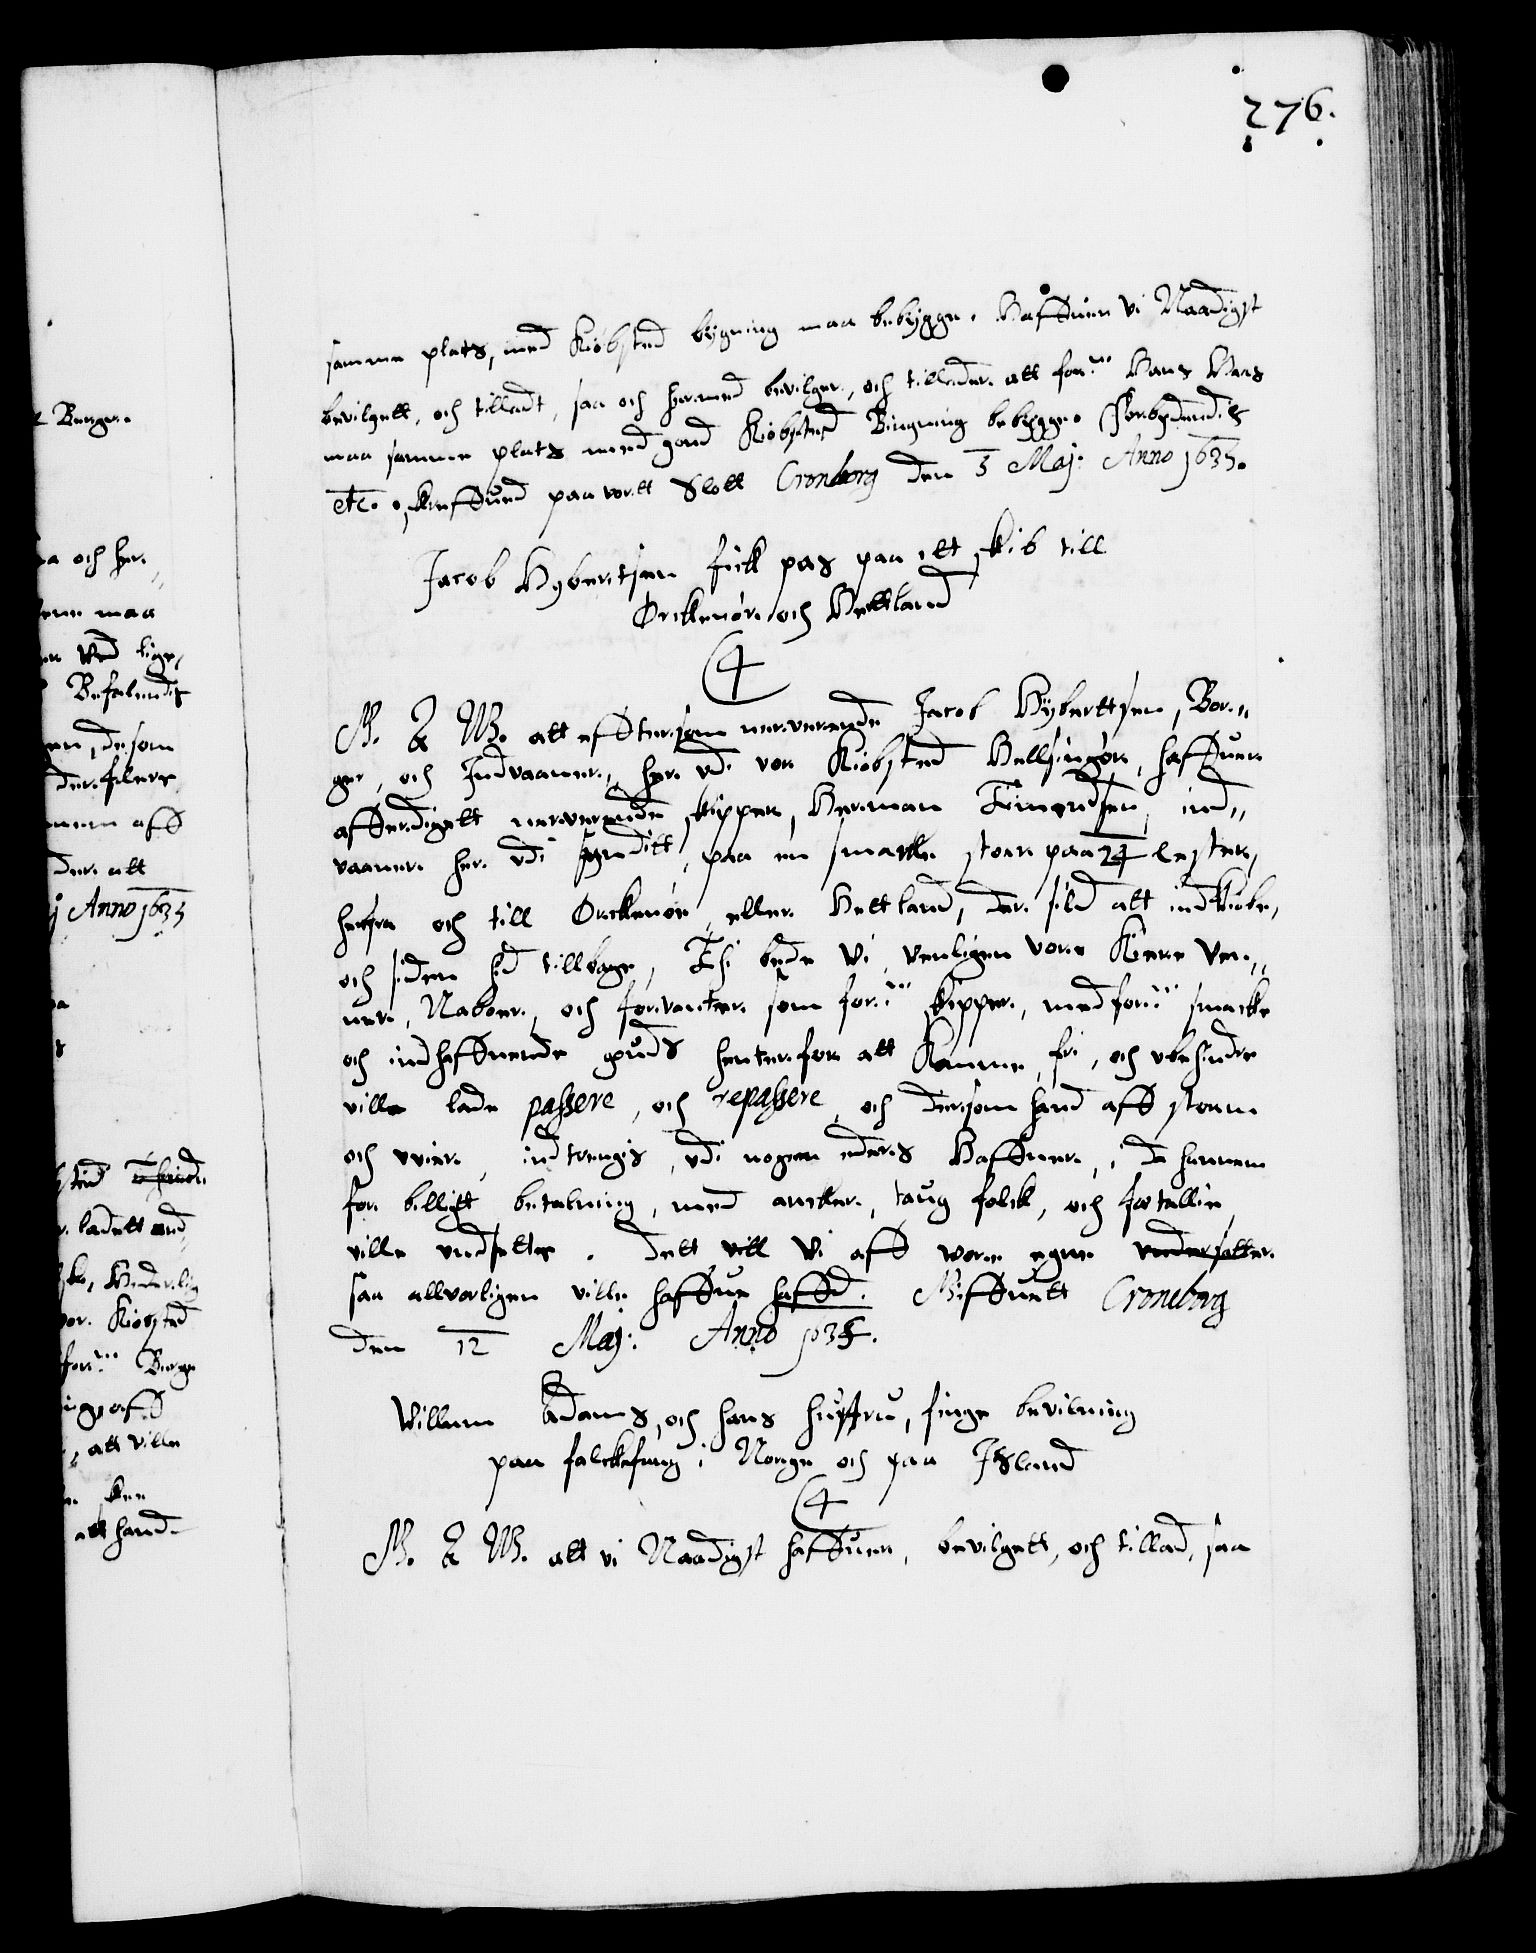 276.
samme plats, med Kiøbsted bygning maa bebygge. Haffuer vi Naadigst
bevilgett, och tilladt, saa och hermed bevilger, och tillader. att for.ne Hans Hans
maa samme plats med goed Kiøbsted Bingning bebygge. Forbydendis
etc. skreffued paa vortt Slott Cronborg den 3 Maj: Anno 1635.
Jacob Hybertsen fick pas paa itt skib till
Ørckenør och Hettland
C4
G. A. W. att efftersom nerverende Jacob Hybertsen, Bor„
ger, och Indvaaner„ her vdi vor Kiøbsted Hellsingør, haffuer
afferdigett nerverende skipper, Herman Simendsen, ind„
vaaner her vdi sunditt, paa en smacke stoer paa 24 lester,
herfra och till Ørckenør, eller Hettland, der sild att indkiøbe,
och siden hid tillbage, Thi bede Wi venligen vore Kiere Ven„
ner, Naboer, och forvanter som for.ne skipper, med for.ne smacke
och indhaffuende guds henter for att Komme, fri, och vbehindre
ville lade passere, och repassere, och dersom hand aff storm
och vvier, indtrengis, vdi nogen eders Haffner, i da hannem
for billigt betalning, med ancker, taug folck, och fortallie
ville vndsette. dett vill Wi aff wore egne vndersatter
saa allvorligen ville haffue haffd. Giffuett Croneborg
den 12 Maj: Anno 1635.
Willum Adams, och hans hustru, finge bevilning
paa falckefang i Norge och paa Jsland
C4
G. A. W. att vi Naadigst haffuer, bevilgett, och tillad, saa
Borger.
och her„
maa
Ved lige,
Befalendis
en, desom
der flere
aff
der att
Anno 1635
ladett
Hederlig
vor Kiøbsted
for.ne Borge
aff
att ville
skee
att hand